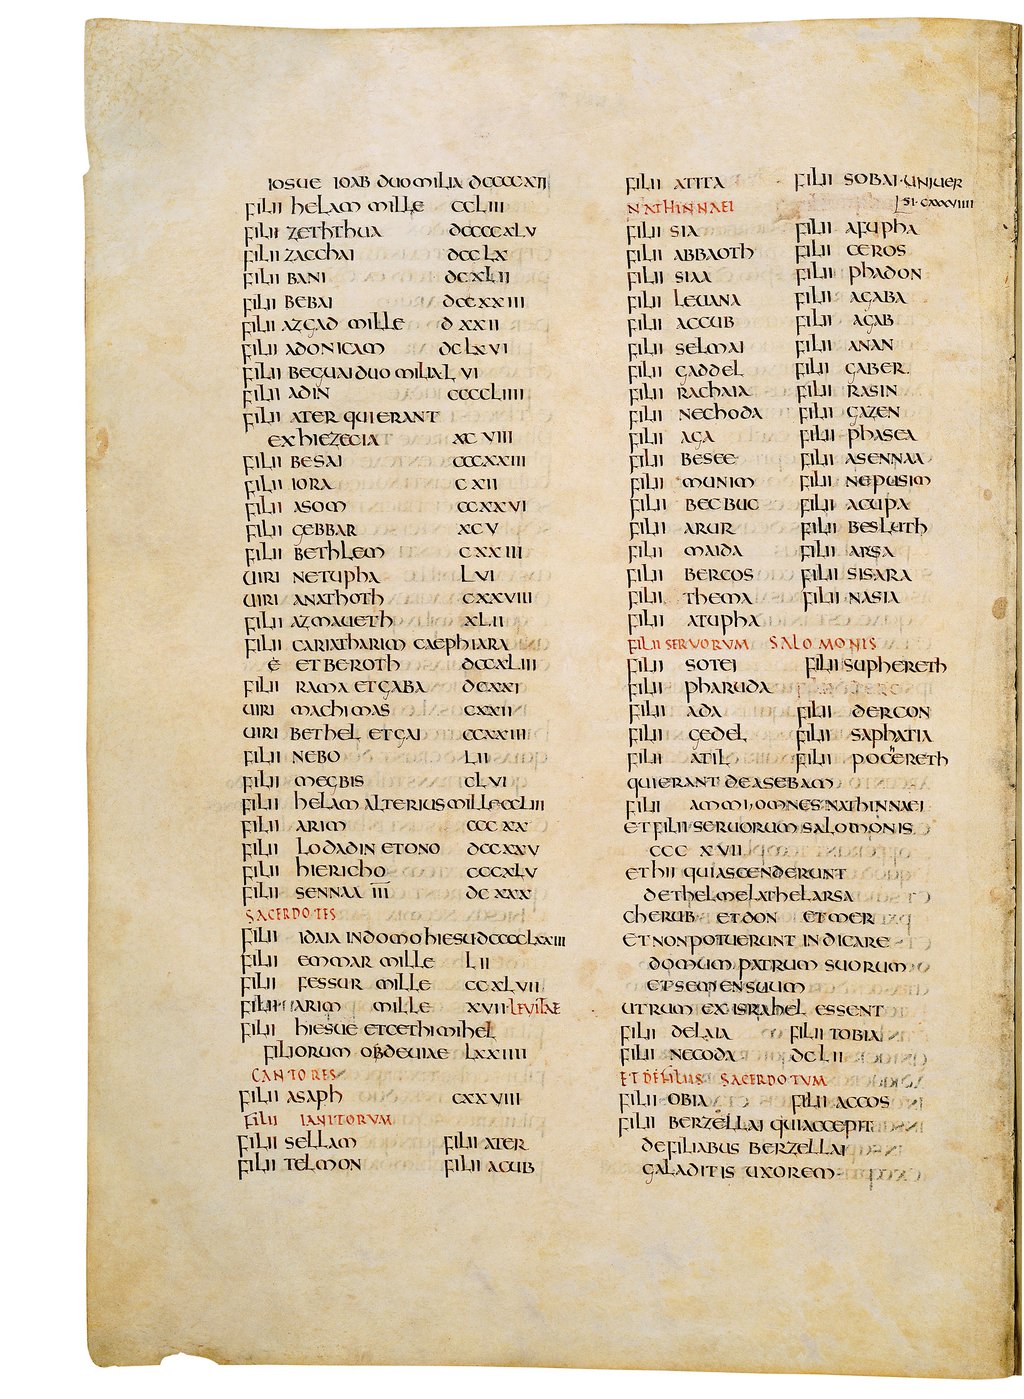 IOSUE IOAB DUO MILIA DCCCCXII
FILII HELAM MILLE CCLIII
FILII ZETHTHUA DCCCCXLV
FILII ZACCHAI DCCLX
FILII BANI DCXLII
FILII BEBAI DCCXXIII
FILII AZGAD MILLE DXXII
FILII ADONICAM DCLXVI
FILII BEGUAI DUO MILIA LVI
FILII ADIN CCCCLIIII
FILII ATER QUI ERANT
EX HIEZECIA XCVIII
FILII BESAI CCCXXIII
FILII IORA CXII
FILII ASOM CCXXVI
FILII GEBBAR XCV
FILII BETHLEM CXXIII
UIRI NETUPHA LVI
UIRI ANATHOTH CXXVIII
FILII AZMAUETH XLII
FILII CARIATHARIM CAEPHIARA
E ET BEROTH DCCXLIII
FILII RAMA ET GABA DCXXI
UIRI MACHIMAS CXXII
UIRI BETHEL ET GAI CCXXIII
FILII NEBO LII
FILII MEGBIS CLVI
FILII HELAM ALTERIUS MILLE CCLIII
FILII ARIM CCCXX
FILII LODADIN ET ONO DCCXXV
FILII HIERICHO CCCXLV
FILII SENNAA III DCXXX
SACERDOTES
FILII IDAIA IN DOMO HIESU DCCCCLXXIII
FILII EMMAR MILLE LII
FILII FESSUR MILLE CCXLVII
FILII ARIM MILLE XVII LEVITAE
FILII HIESUE ET CETHIMIHEL
FILIORUM OBDEUIAE LXXIIII
CANTORES
FILII ASAPH CXXVIII
FILII IANITORUM
FILII SELLAM FILII ATER
FILII TELMON FILII ACUB
FILII ATITA FILII SOBAI · UNIUER
NATHINNAEI SI · CXXXVIIII
FILII SIA FILII ASUPHA
FILII ABBAOTH FILII CEROS
FILII SIAA FILII PHADON
FILII LEUANA FILII AGABA
FILII ACCUB FILII AGAB
FILII SELMAI FILII ANAN
FILII GADDEL FILII GABER
FILII RACHAIA FILII RASIN
FILII NECHODA FILII GAZEN
FILII AGA FILII PHASEA
FILII BESEE FILII ASENNAA
FILII MUNIM FILII NEPUSIM
FILII BECBUC FILII ACUPA
FILII ARUR FILII BESLUTH
FILII MAIDA FILII ARSA
FILII BERCOS FILII SISARA
FILII THEMA FILII NASIA
FILII ATUPHA
FILII SERUORUM SALOMONIS
FILII SOTEI FILII SUPHERETH
FILII PHARUDA
FILII ADA FILII DERCON
FILII GEDEL FILII SAPHATIA
FILII ATIL FILII POCERETH
QUI ERANT DE ASEBAM
FILII AMMI · OMNES NATHINNAEI
ET FILII SERUORUM SALOMONIS
CCCXVII
ET HII QUI ASCENDERUNT
DE THELMELA THELARSA
CHERUB ET DON ET MER
ET NON POTUERUNT INDICARE
DOMUM PATRUM SUORUM
ET SEMEN SUUM
UTRUM EX ISRAHEL ESSENT
FILII DELAIA FILII TOBIA
FILII NECODA DCLII
ET DE FILIIS SACERDOTUM
FILII OBIA FILII ACCOS
FILII BERZELLAI QUI ACCEPIT
DE FILIABUS BERZELLAI
GALADITIS UXOREM